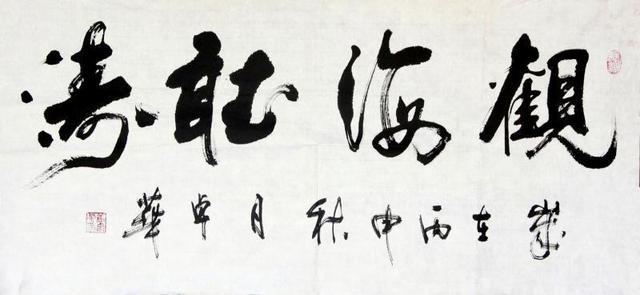 觀海聽濤
歲在丙申秋月卓華